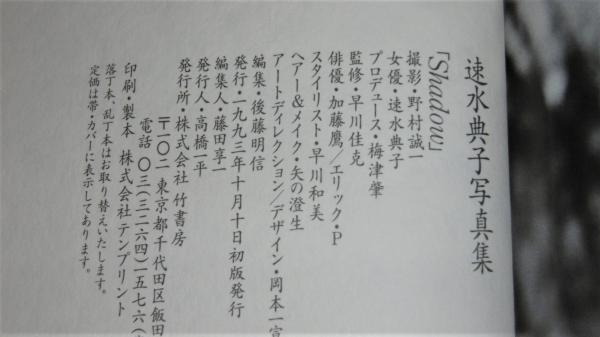 速水典子写真集
「Shadow」
撮影・野村誠一
女優・速水典子
プロデュース・梅津肇
監修・早川佳克
俳優・加藤鷹／エリック・P
スタイリスト・早川和美
ヘアー&メイク・矢の澄生
アートディレクション／デザイン・岡本一宣
編集・後藤明信
発行・一九九三年十月十日初版発行
編集人・藤田享一
発行人・高橋一平
発行所・株式会社 竹書房
〒一〇二 東京都千代田区飯田
電話 〇三(三二六四)一五七六(
印刷・製本 株式会社テンプリント
落丁本、乱丁本はお取り替えいたします。
定価は帯・カバーに表示してあります。